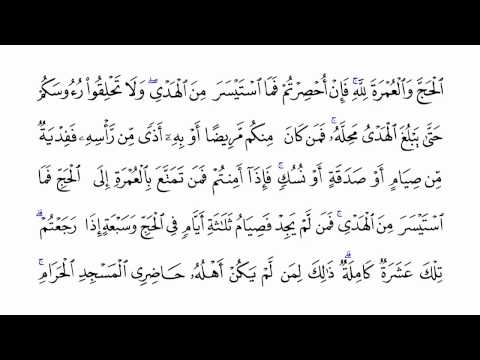 ٱلْحَجَّ وَٱلْعُمْرَةَ لِلَّهِۚ فَإِنْ أُحْصِرْتُمْ فَمَا ٱسْتَيْسَرَ مِنَ ٱلْهَدْيِۖ وَلَا تَحْلِقُوا۟ رُءُوسَكُمْ
حَتَّىٰ يَبْلُغَ ٱلْهَدْىُ مَحِلَّهُۥۚ فَمَن كَانَ مِنكُم مَّرِيضًا أَوْ بِهِۦٓ أَذًى مِّن رَّأْسِهِۦ فَفِدْيَةٌ
مِّن صِيَامٍ أَوْ صَدَقَةٍ أَوْ نُسُكٍۚ فَإِذَآ أَمِنتُمْ فَمَن تَمَتَّعَ بِٱلْعُمْرَةِ إِلَى ٱلْحَجِّ فَمَا
ٱسْتَيْسَرَ مِنَ ٱلْهَدْيِۚ فَمَن لَّمْ يَجِدْ فَصِيَامُ ثَلَٰثَةِ أَيَّامٍ فِى ٱلْحَجِّ وَسَبْعَةٍ إِذَا رَجَعْتُمْۗ
تِلْكَ عَشَرَةٌ كَامِلَةٌۗ ذَٰلِكَ لِمَن لَّمْ يَكُنْ أَهْلُهُۥ حَاضِرِى ٱلْمَسْجِدِ ٱلْحَرَامِۚ